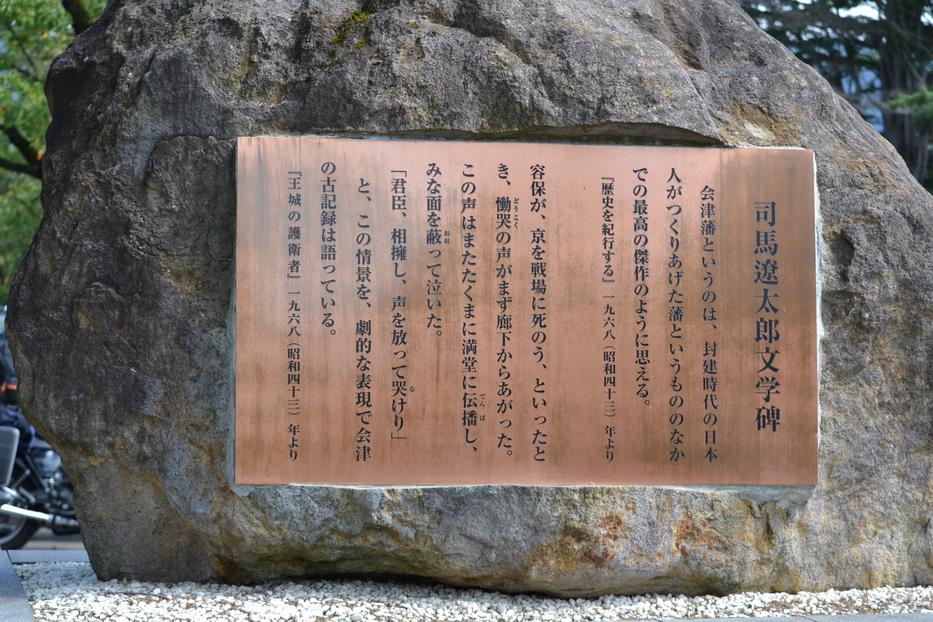 司馬遼太郎文学碑
会津藩というのは、封建時代の日本
人がつくりあげた藩というもののなか
での最高の傑作のように思える。
『歴史を紀行する』一九六八（昭和四十三）年より
容保が、京を戦場に死のう、といったと
き、慟哭の声がまず廊下からあがった。
どうこく
この声はまたたくまに満堂に伝播し、
でんぱ
みな面を蔽って泣いた。
おお
「君臣、相擁し、声を放って哭けり」
な
と、この情景を、劇的な表現で会津
の古記録は語っている。
『王城の護衛者』一九六八（昭和四十三）年より